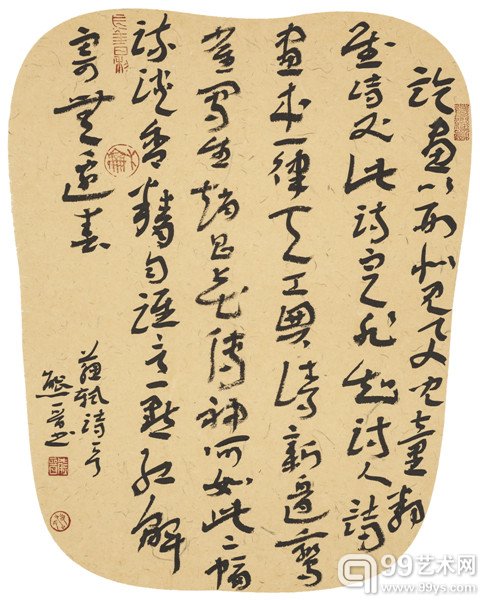 論畫以形似見與兒童鄰
賦詩必此詩定非知詩人詩
畫本一律天工與清新邊鸞
雀寫生趙昌花傳神何如此二幅
疏淡含精勻誰言一點紅解
寄無邊春
蘇軾詩一首
99艺术网
www.99ys.com